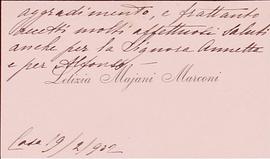 aggradimento, e frattanto
accetti molti affettuosi saluti
anche per la Signora Annetta
e per Alfonso
Letizia Majani Marconi
Casa 19/2/902